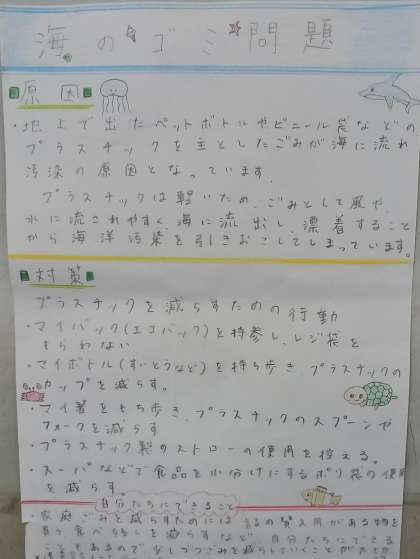 海のゴミ問題
原因
・地上で出たペットボトルやビニール袋などの
プラスチックを主としたごみが海に流れ
汚染の原因となっています。
プラスチックは軽いため、ごみとして風や
水に流されやすく海に流出し、漂着すること
から海洋汚染を引きおこしてしまっています。
対策
プラスチックを減らすための行動
・マイバック(エコバック)を持参し、レジ袋を
もらわない
・マイボトル(すいとうなど)を持ち歩き、プラスチックの
カップを減らす。
・マイ箸をもち歩き、プラスチックのスプーンや
フォークを減らす
・プラスチック製のストローの使用を控える。
・スーパなどで食品を小分けにするポリ袋の使用
を減らす。
自分たちにできること
・家庭ごみを減らすためには
買う食べ残しを減らすなど、自分たちにできる
あるので少しづつごみを減らしていくことが